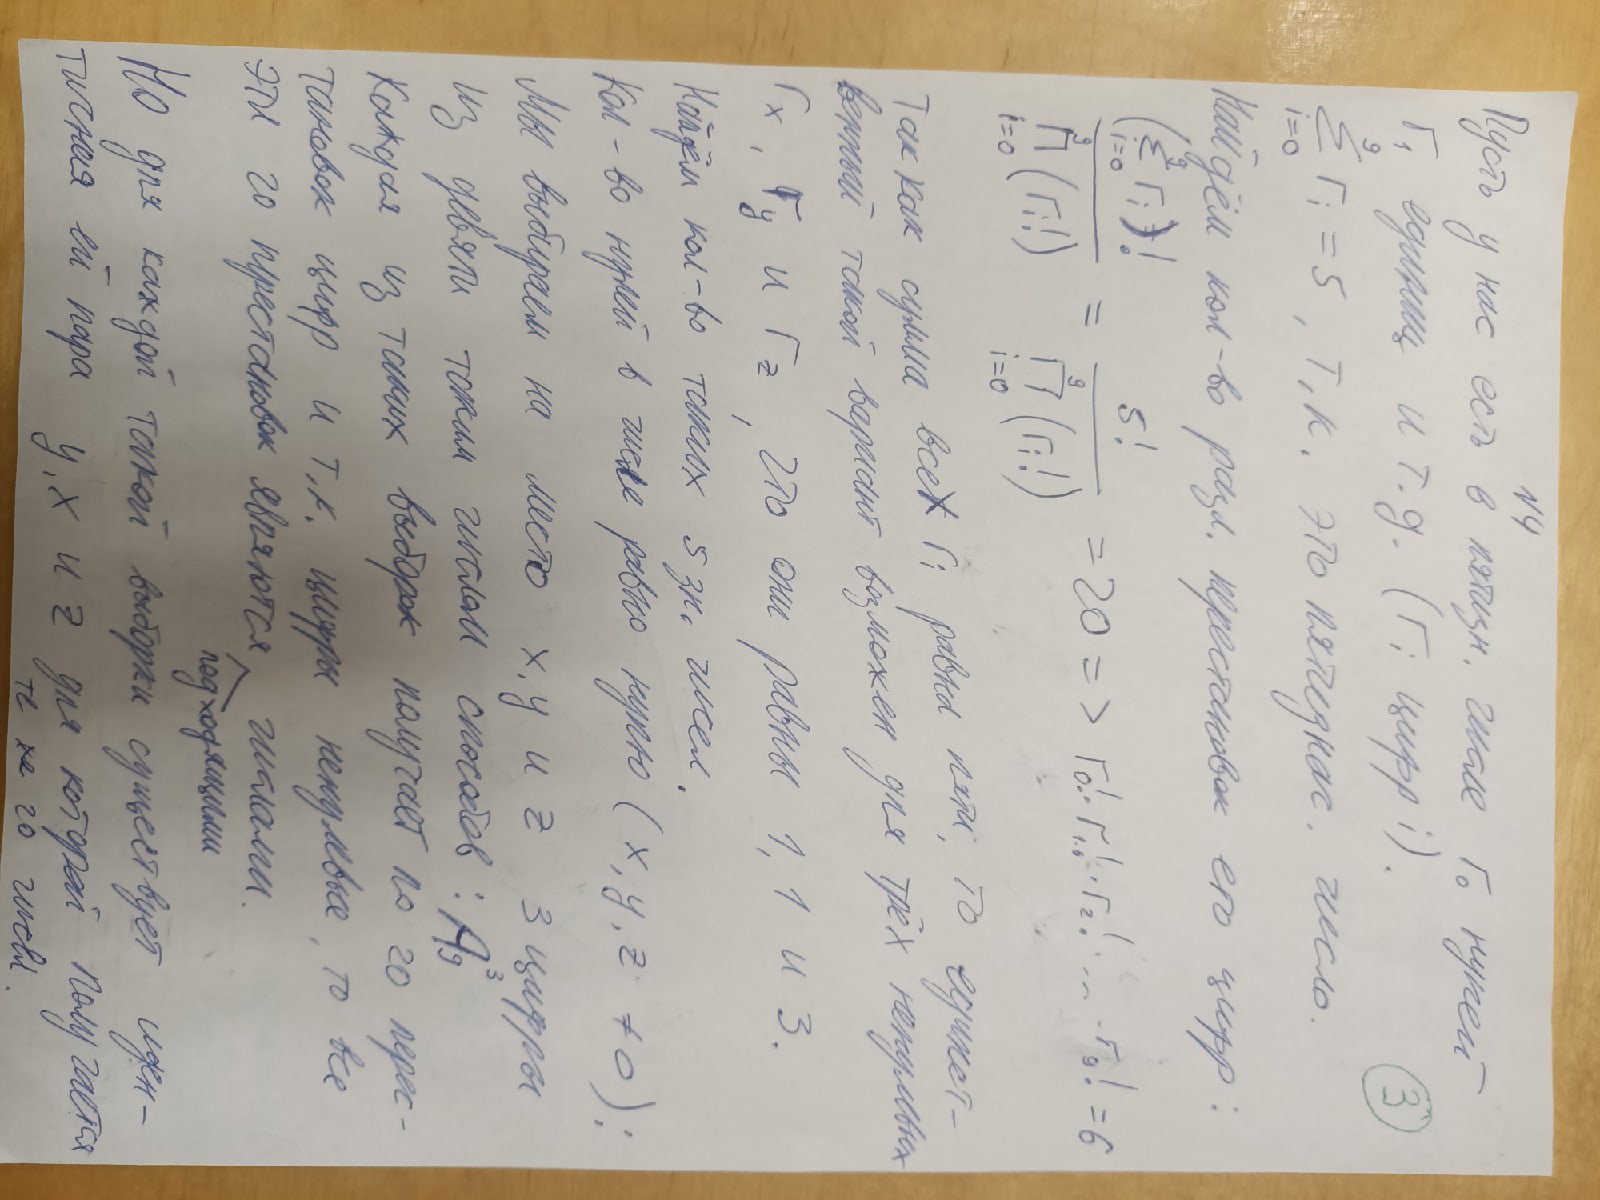 №4
Пусть у нас есть в пятизн. числе Г₀ нулей
Г₁ единиц и т.д. (Гᵢ цифр i).
∑_{i=0}^{9} Гᵢ = 5, т.к. это пятизнач. число.
Найдём кол-во разл. перестановок его цифр:
(∑_{i=0}^{9} Гᵢ)! / ∏_{i=0}^{9} (Гᵢ!) = 5! / ∏_{i=0}^{9} (Гᵢ!) = 20 => Г₀!·Г₁!·Г₂!·...·Г₉! = 6
Так как сумма всех Гᵢ равна пяти, то единст-
венный такой вариант возможен для трёх ненулевых
Гx, Гy и Гz, что они равны 1, 1 и 3.
Найдём кол-во таких 5 зн. чисел.
Кол-во нулей в числе равно нулю (x, y, z ≠ 0):
Мы выбираем на место x, y и z 3 цифры
из девяти таким числом способов: A₉³
Каждая из таких выборок получает по 20 перес-
тановок цифр и т.к. цифры ненулевые, то все
эти 20 перестановок являются подходящими числами.
Но для каждой такой выборки существует иден-
тичная ей пара y, x и z для которой получается
те же 20 чисел.
3